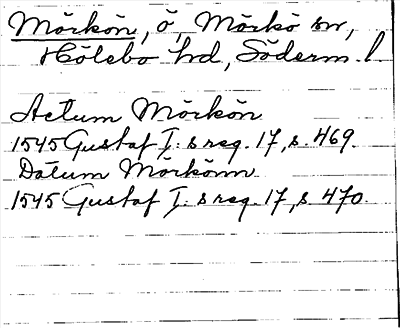 Mörkön, ö, Mörkö sn,
Hölebo hd, Söderm. l.
Actum Mörkön
1545 Gustaf I:s reg. 17, s. 469.
Datum Mörkönn
1545 Gustaf I:s reg. 17, s. 470.